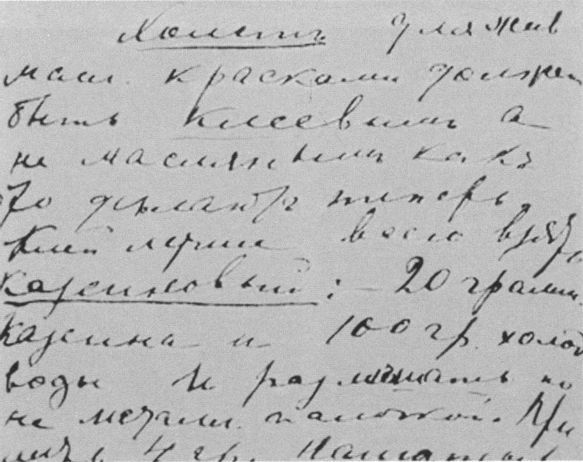 Холстъ для жив
масл. красками должен
быть клеевымъ а
не маслянымъ какъ
то делаютъ теперь.
Клей лучше всего взять
казеиновый: – 20 грамм
казеина и 100 гр. холод
воды и размешать но
не металл. палочкой. При
лить 4 гр. нашатыр